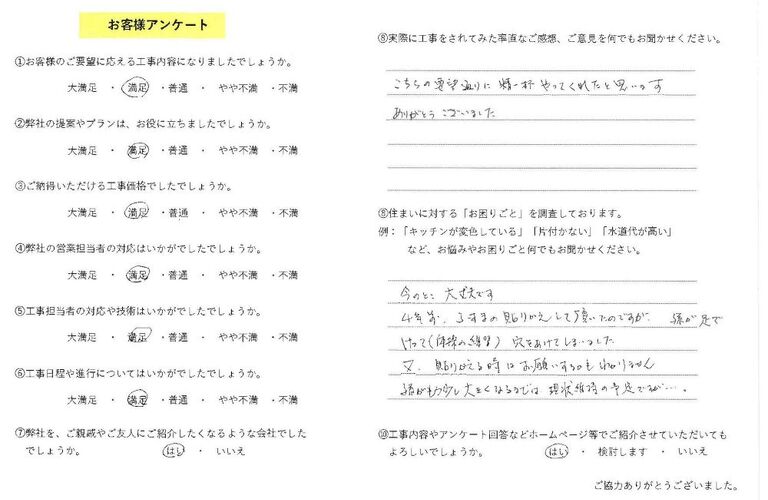 お客様アンケート
①お客様のご要望に応える工事内容になりましたでしょうか。
大満足 ・ 満足 ・普通 ・ やや不満 ・不満
②弊社の提案やプランは、お役に立ちましたでしょうか。
大満足 ・ 満足 ・普通 ・ やや不満 ・不満
③ご納得いただける工事価格でしたでしょうか。
大満足 ・ 満足 ・普通 ・ やや不満 ・不満
④弊社の営業担当者の対応はいかがでしたでしょうか。
大満足 ・ 満足 ・普通 ・ やや不満 ・不満
⑤工事担当者の対応や技術はいかがでしたでしょうか。
大満足 ・ 満足 ・普通 ・ やや不満 ・不満
⑥工事日程や進行についてはいかがでしたでしょうか。
大満足 ・ 満足 ・普通 ・ やや不満 ・不満
⑦弊社を、ご親戚やご友人にご紹介したくなるような会社でした
でしょうか。 はい ・ いいえ
⑧実際に工事をされてみた率直なご感想、ご意見を何でもお聞かせください。
こちらの要望通りに 精一杯 やってくれたと思います
ありがとう ございました
⑨住まいに対する「お困りごと」を調査しております。
例：「キッチンが変色している」「片付かない」「水道代が高い」
など、お悩みやお困りごと何でもお聞かせください。
今のとこ 大丈夫です
4年前、ふすまの貼りかえして頂いたのですが、孫が足で
けって(体操の練習) 穴をあけてしまいました
又、貼りかえる時は お願いするかも わかりません
孫がもう少し大きくなるまでは 現状維持の予定ですが…。
⑩工事内容やアンケート回答などホームページ等でご紹介させていただいても
よろしいでしょうか。 はい ・ 検討します ・ いいえ
ご協力ありがとうございました。